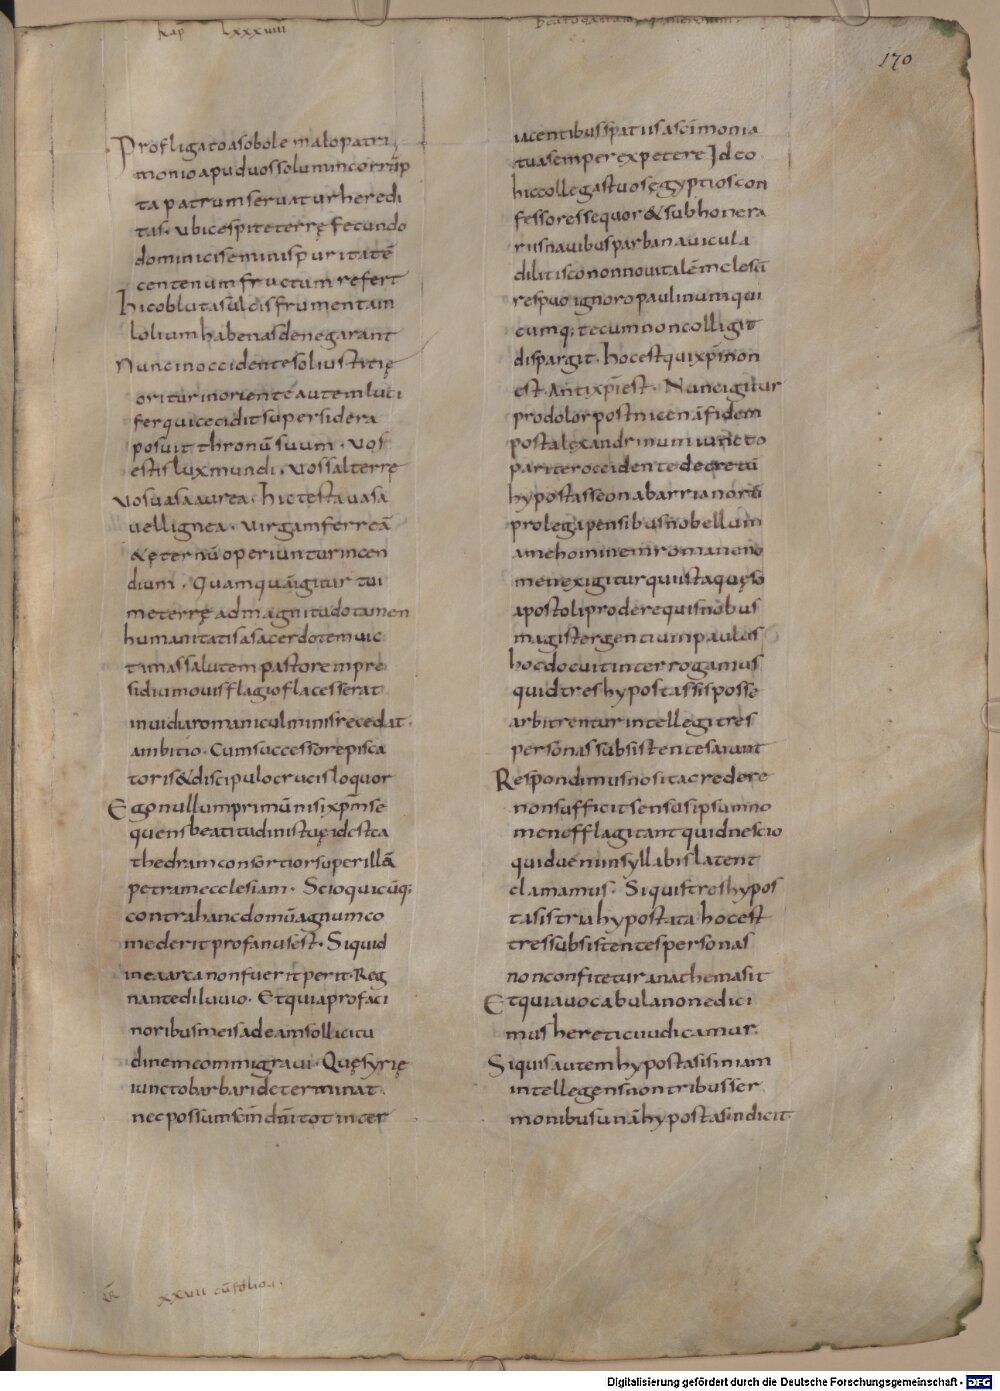 kap lxxxviiii
170
Profligato a sobole malo patri
monio apud vos solum incorrup
ta patrum servatur heredi
tas. ubi cespite terrę fecundo
dominici seminis puritatē
centenum fructum refert
hic obluta sulcis frumenta in
lolium habenas denegarant
Nunc in occidente sol iustitię
oritur in oriente autem luci
fer qui cecidit super sidera
posuit thronū suum. vos
estis lux mundi. vos sal terrę
vos vasa aurea. hic testa vasa
vel lignea. virgam ferreā
& ęternū operiuntur incen
dium. Quamquā igitur tui
me terrę ad magnitudo tamen
humanitatis a sacerdotem uic
tima salutem pastorem pre
sidium ovis flagio flacesserat
invidia romani culminis recedat
ambitio. Cum successore pisca
toris & discipulo crucis loquor
Ego nullum primū nisi xpm se
quens beatitudinis tuę id est ca
thedram consortior super illā
petram ecclesiam. Scio quicūq;
contra hanc domū agnum co
mederit profanus est. Si quid
in ea arca non fuerit perit. Reg
nante diluvio. Et quia pro faci
noribus meis ad eam sollicitu
dinem commigravi. Quę syrię
iuncto barbari determinat.
nec possum scm dni tot inter
iacentibus spatiis ascimonia
tua semper expetere Ideo
hic collegas tuos ęgyptios con
fessores sequor & sub honera
riis navibus parba navicula
dilitisco non novi talēm clesū
respuo ignoro paulinum qui
cumq; tecum non colligit
dispargit. hoc est qui xpi non
est. Antixpi est. Nunc igitur
pro dolor post nicenā fidem
post alęxandrinum iuncto
pariter occidente decretū
hypostasseon ab arrianorū
prole gapensibus nobellum
a me hominem romano no
men exigitur qui ista quęso
apostoli prodere quis nobus
magister gentium paulus
hoc docuit interrogamus
quid tres hypostassis posse
arbitrentur intellegi tres
personas subsistentes aiunt
Respondimus nos ita credere
non sufficit sensus ipsum no
men efflagitant quid nescio
quid veni in syllabis latent
clamamus. Si quis tres hypos
tasis tria hypostata hoc est
tres subsistentes personas
non confitetur anathema sit
Et quia vocabula non edici
mus heretici iudicamur.
Si quis autem hypostasis in iam
intellegens nōn tribus ser
monibus unā hypostasin dicit
xxviii cū folio .i.
Digitalisierung gefördert durch die Deutsche Forschungsgemeinschaft - DFG